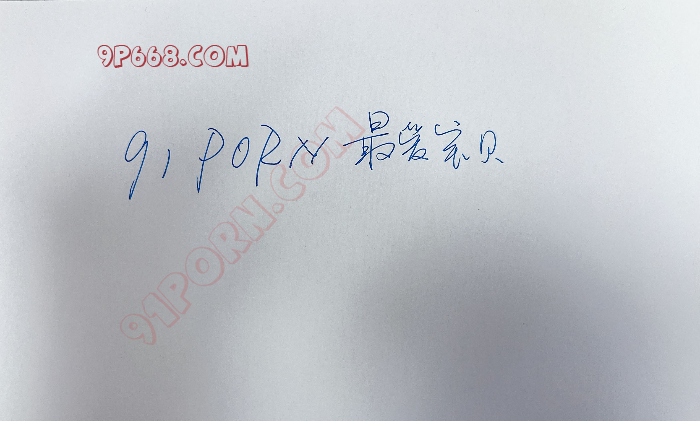 9P668.COM
91PORN最爱宝贝
91PORN.COM